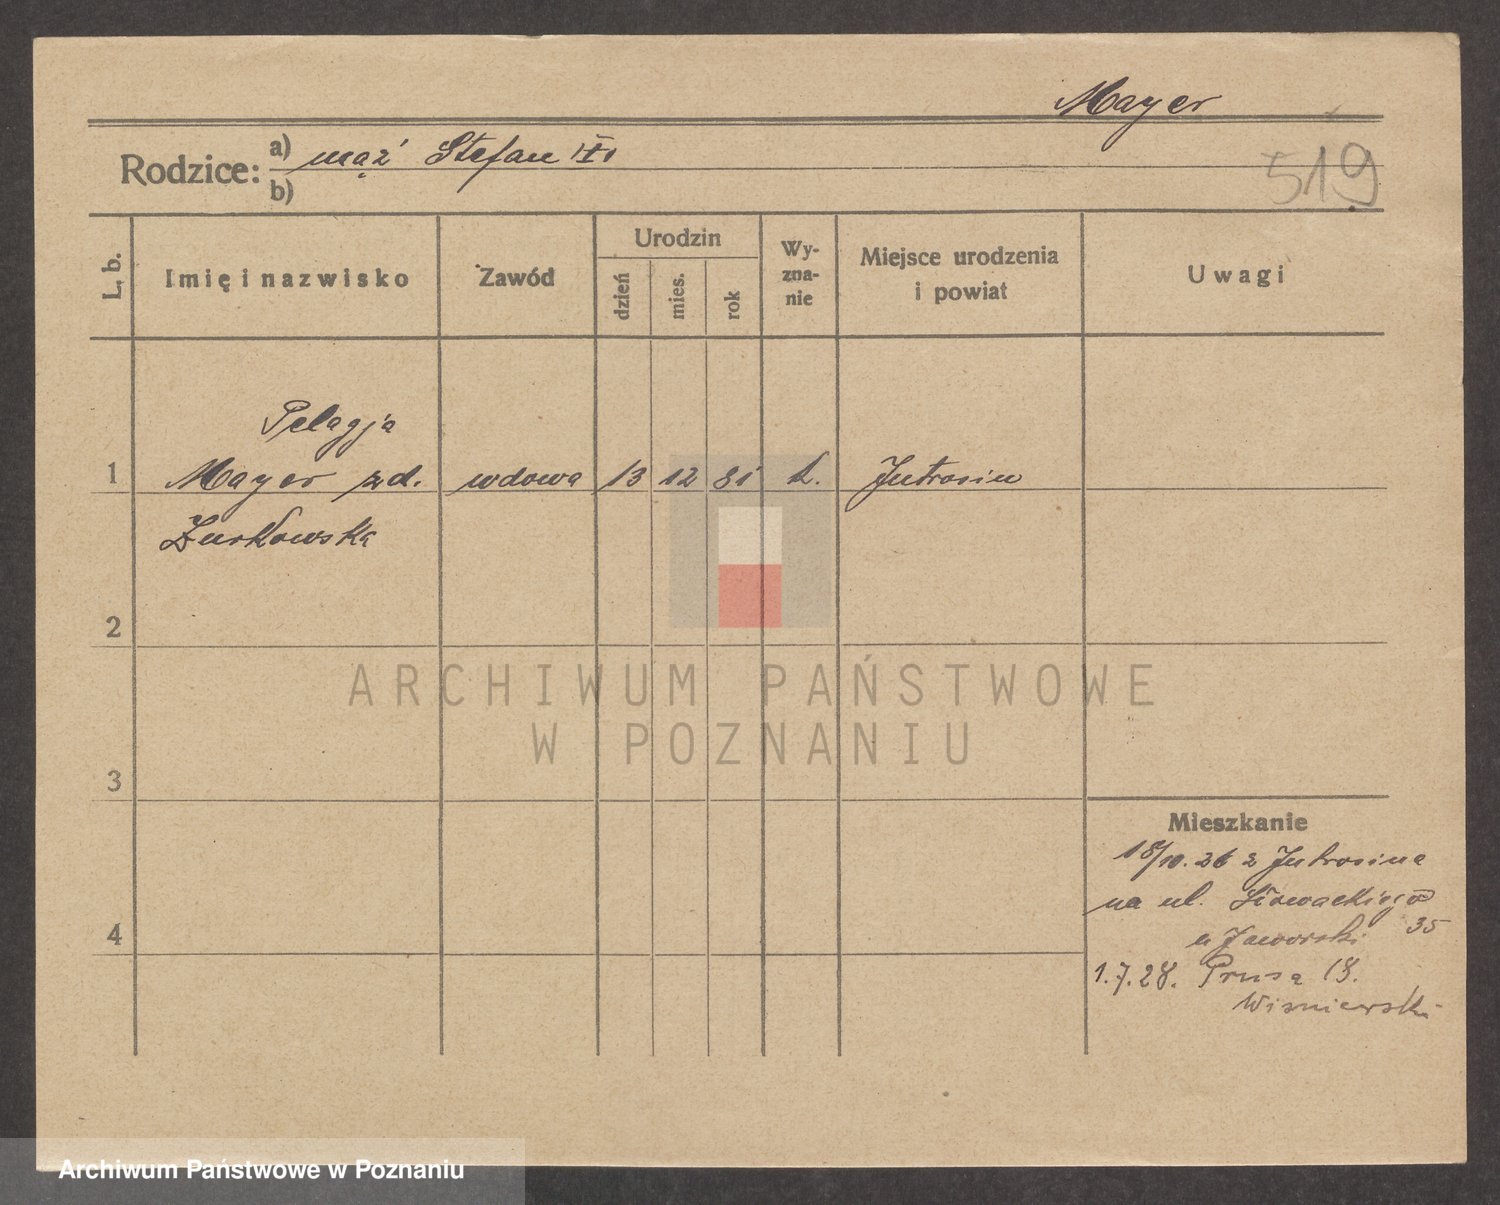 Mayer
519
Rodzice:
a) mąż Stefan
b)
L. b.
Imię i nazwisko
Zawód
Urodzin
dzień
mies.
rok
Wy-
zna-
nie
Miejsce urodzenia
i powiat
Uwagi
Pelagja
1 Mayer zd. wdowa 13 12 81 k. Jutrosin
Żurkowska
2
3
4
Mieszkanie
18/10. 26 z Jutrosina
na ul. Słowackiego
35
u Jaworski
1.7.28. Prusa 18.
Wiśniewski
ARCHIWUM PAŃSTWOWE
W POZNANIU
Archiwum Państwowe w Poznaniu